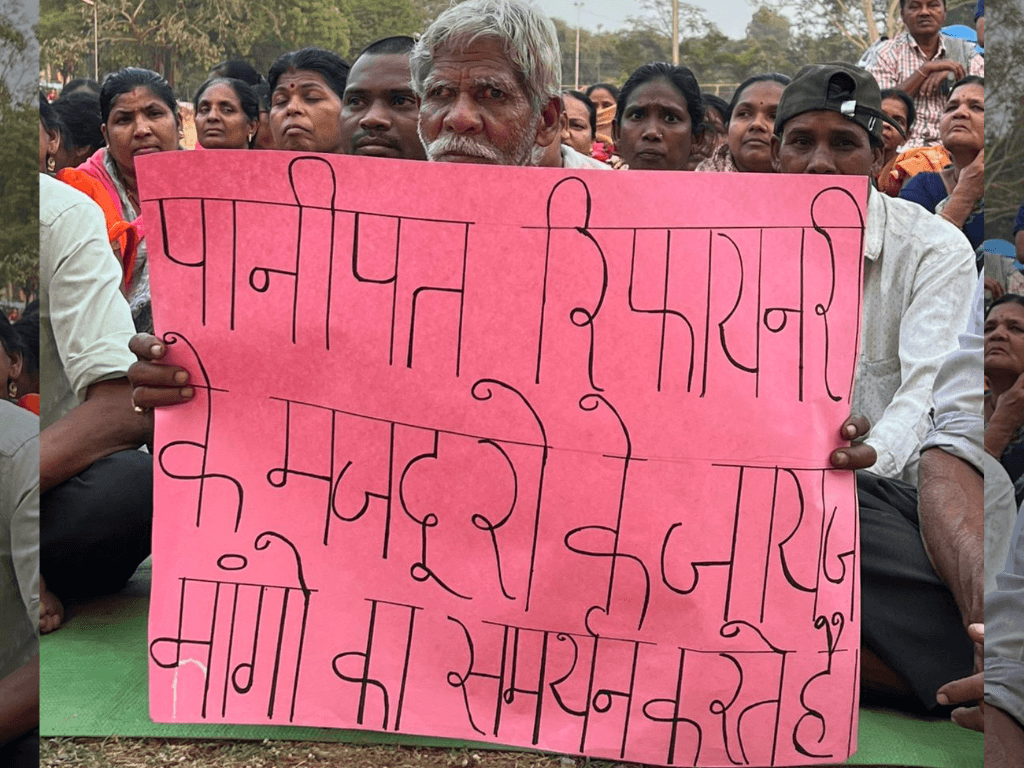 पानीपत रिफायनरी
के मजदूरो के जायज
मांगो का समर्थन करते है